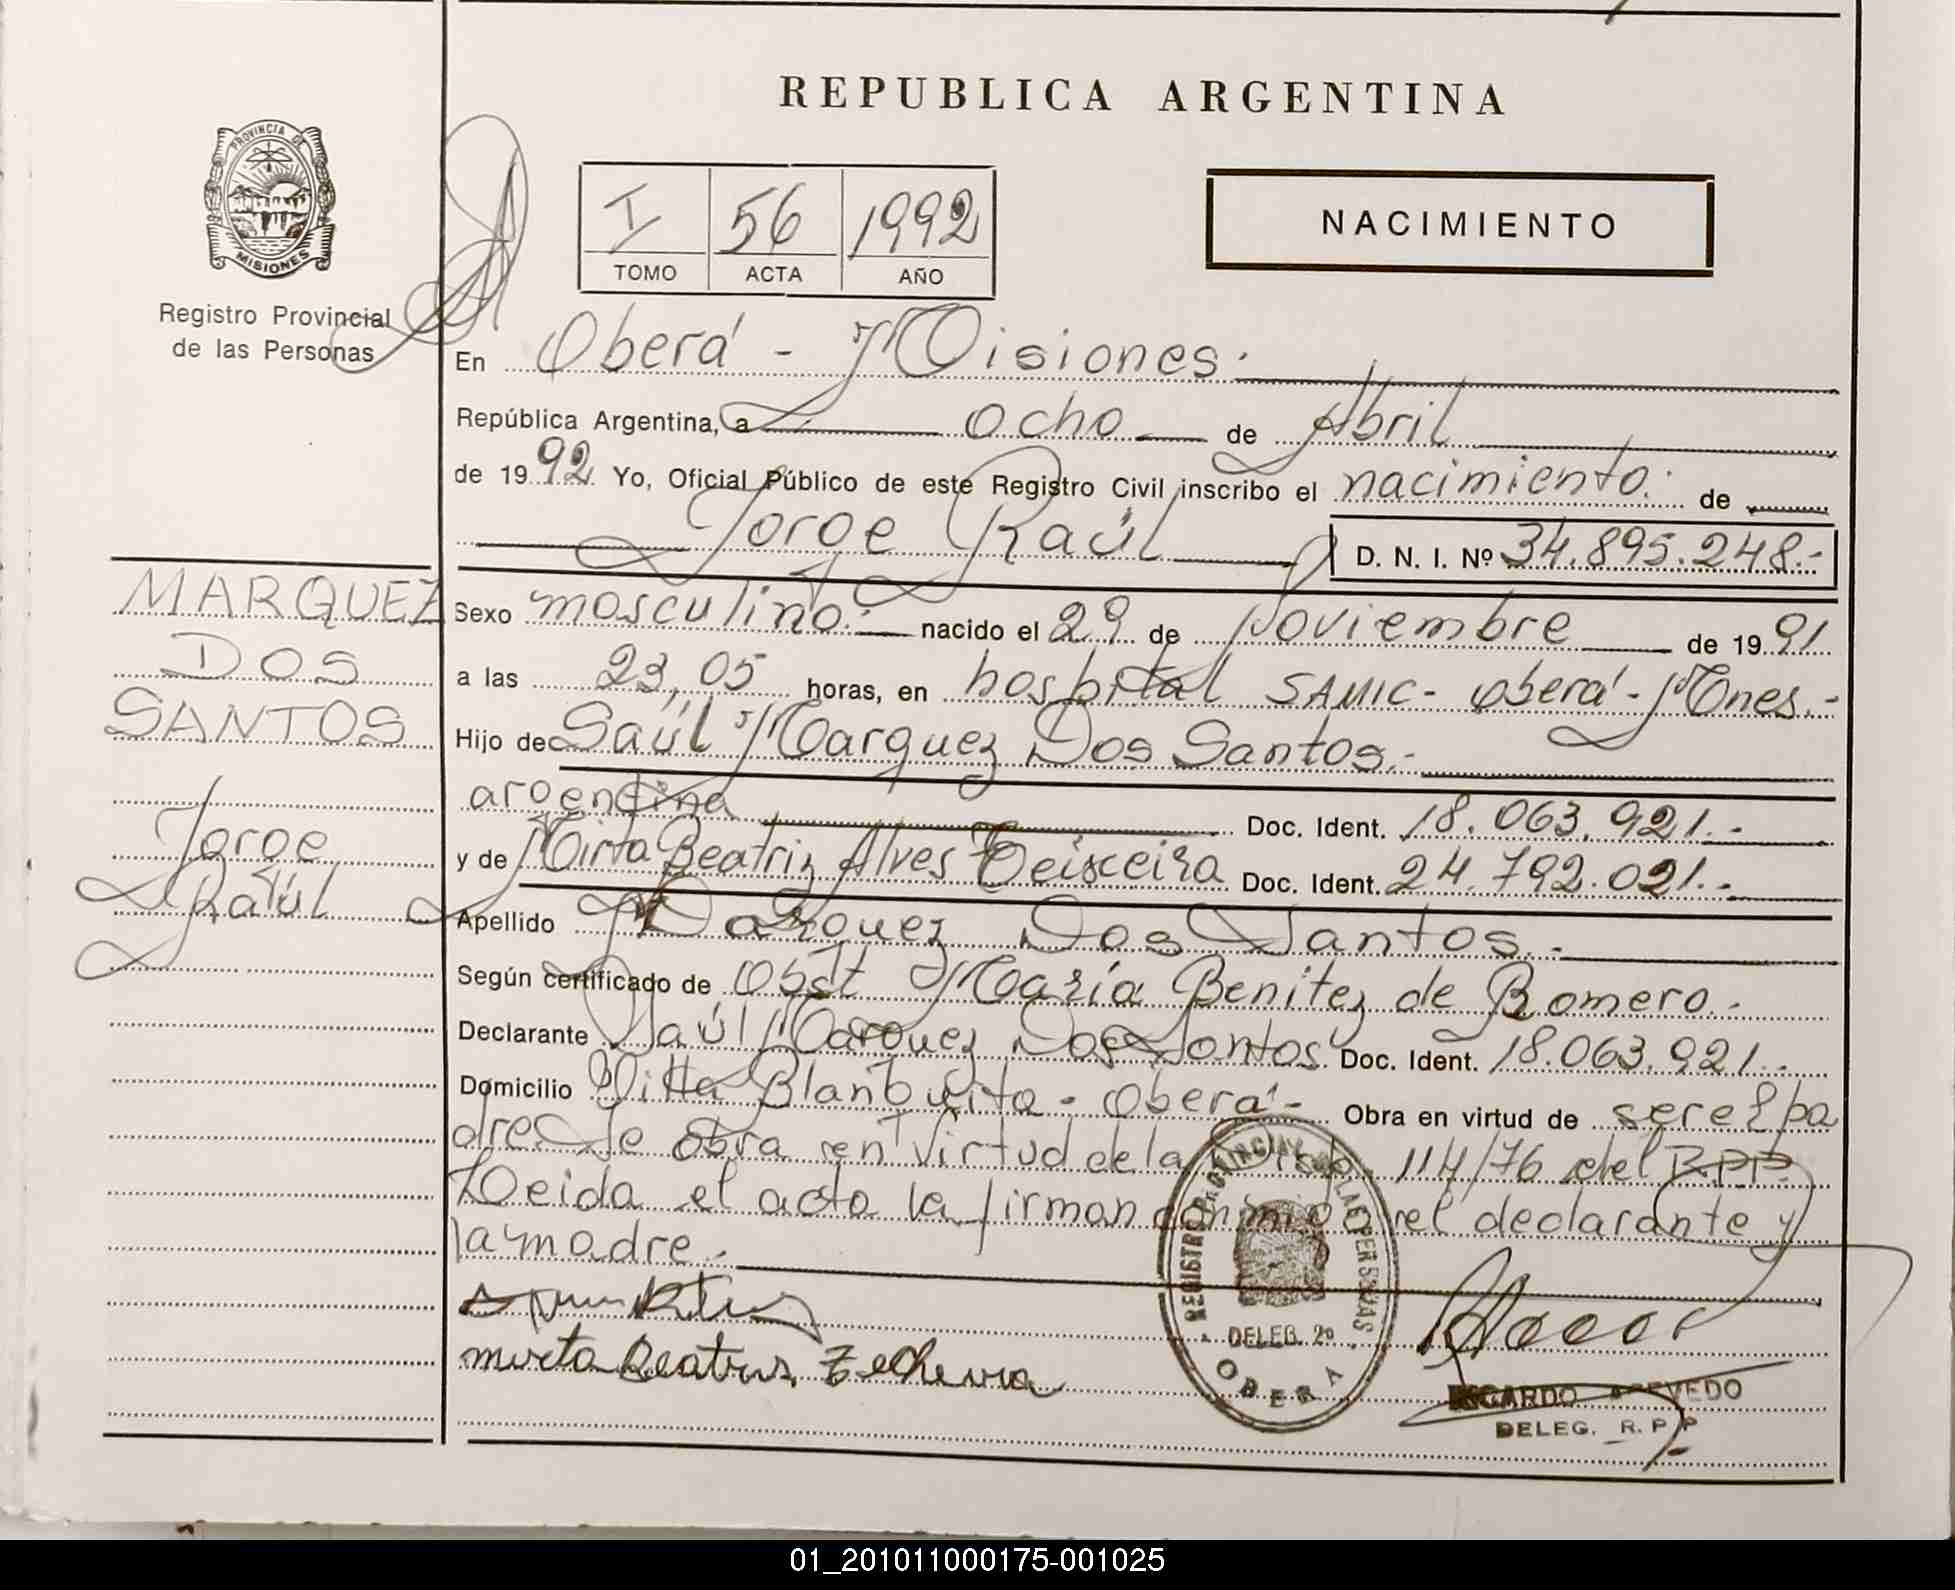 REPUBLICA ARGENTINA
PROVINCIA DE
MISIONES
Registro Provincial
de las Personas
I 56 1992
TOMO ACTA AÑO
NACIMIENTO
En Oberá - Misiones.
República Argentina, a ocho de Abril
de 1992. Yo, Oficial Público de este Registro Civil inscribo el nacimiento. de
Jorge Raúl D. N. I. Nº 34.895.248.-
MARQUEZ
DOS
SANTOS
Jorge
Raúl
Sexo masculino.- nacido el 29 de Noviembre de 1991
a las 23,05 horas, en hospital SAMIC- Oberá - Mnes.-
Hijo de Saúl Marquez Dos Santos.-
argentina Doc. Ident. 18.063.921.-
y de Mirta Beatriz Alves Teixeira Doc. Ident. 24.792.021.-
Apellido Marquez Dos Santos.-
Según certificado de Obst María Benitez de Romero.-
Declarante Saúl Marquez Dos Santos Doc. Ident. 18.063.921.-
Domicilio Villa Blanquita - Oberá - Obra en virtud de ser el pa
dre. Se obra en virtud de la 114/76 del R.P.P.
Leida el acta la firman conmigo el declarante y
la madre.-
mirta Beatris
REGISTRO PROVINCIAL DE LAS PERSONAS
DELEG. 2º
OBERA
RICARDO ACEVEDO
DELEG. R. P. P
01_201011000175-001025